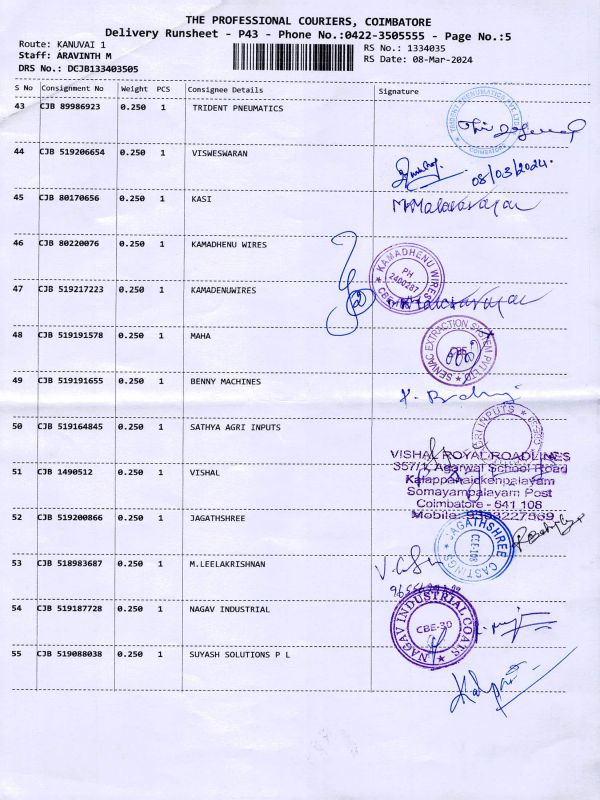 THE PROFESSIONAL COURIERS, COIMBATORE
Delivery Runsheet - P43 - Phone No.:0422-3505555 - Page No.:5
Route: KANUVAI 1
Staff: ARAVINTH M
DRS No.: DCJB133403505
RS No.: 1334035
RS Date: 08-Mar-2024
S No Consignment No Weight PCS Consignee Details Signature
43 CJB 89986923 0.250 1 TRIDENT PNEUMATICS
COIMBATORE
44 CJB 519206654 0.250 1 VISWESWARAN
08/03/2024.
45 CJB 80170656 1 0.250 1 KASI
46 CJB 80220076 0.250 1 KAMADHENU WIRES
KAMADHENU WIRES
PH
2400287
47 CJB 519217223 0.250 1 KAMADENUWIRES
48 CJB 519191578 0.250 1 MAHA
SENVAC EXTRACTION SYSTEM PVT LTD
49 CJB 519191655 0.250 1 BENNY MACHINES
50 CJB 519164845 0.250 1 SATHYA AGRI INPUTS
VISHAL ROYAL ROADLINES
357/1, Agarwal School Road
51 CJB 1490512 0.250 1 VISHAL
Kalappanaickenpalayam
Somayampalayam Post
Coimbatore - 641 108
52 CJB 519200866 0.250 1 JAGATHSHREE
JAGATHSHREE CASTINGS
CBE-108
53 CJB 518983687 0.250 1 M.LEELAKRISHNAN
54 CJB 519187728 0.250 1 NAGAV INDUSTRIAL
NAGAV INDUSTRIAL COATS
CBE-30
55 CJB 519088038 0.250 1 SUYASH SOLUTIONS P L